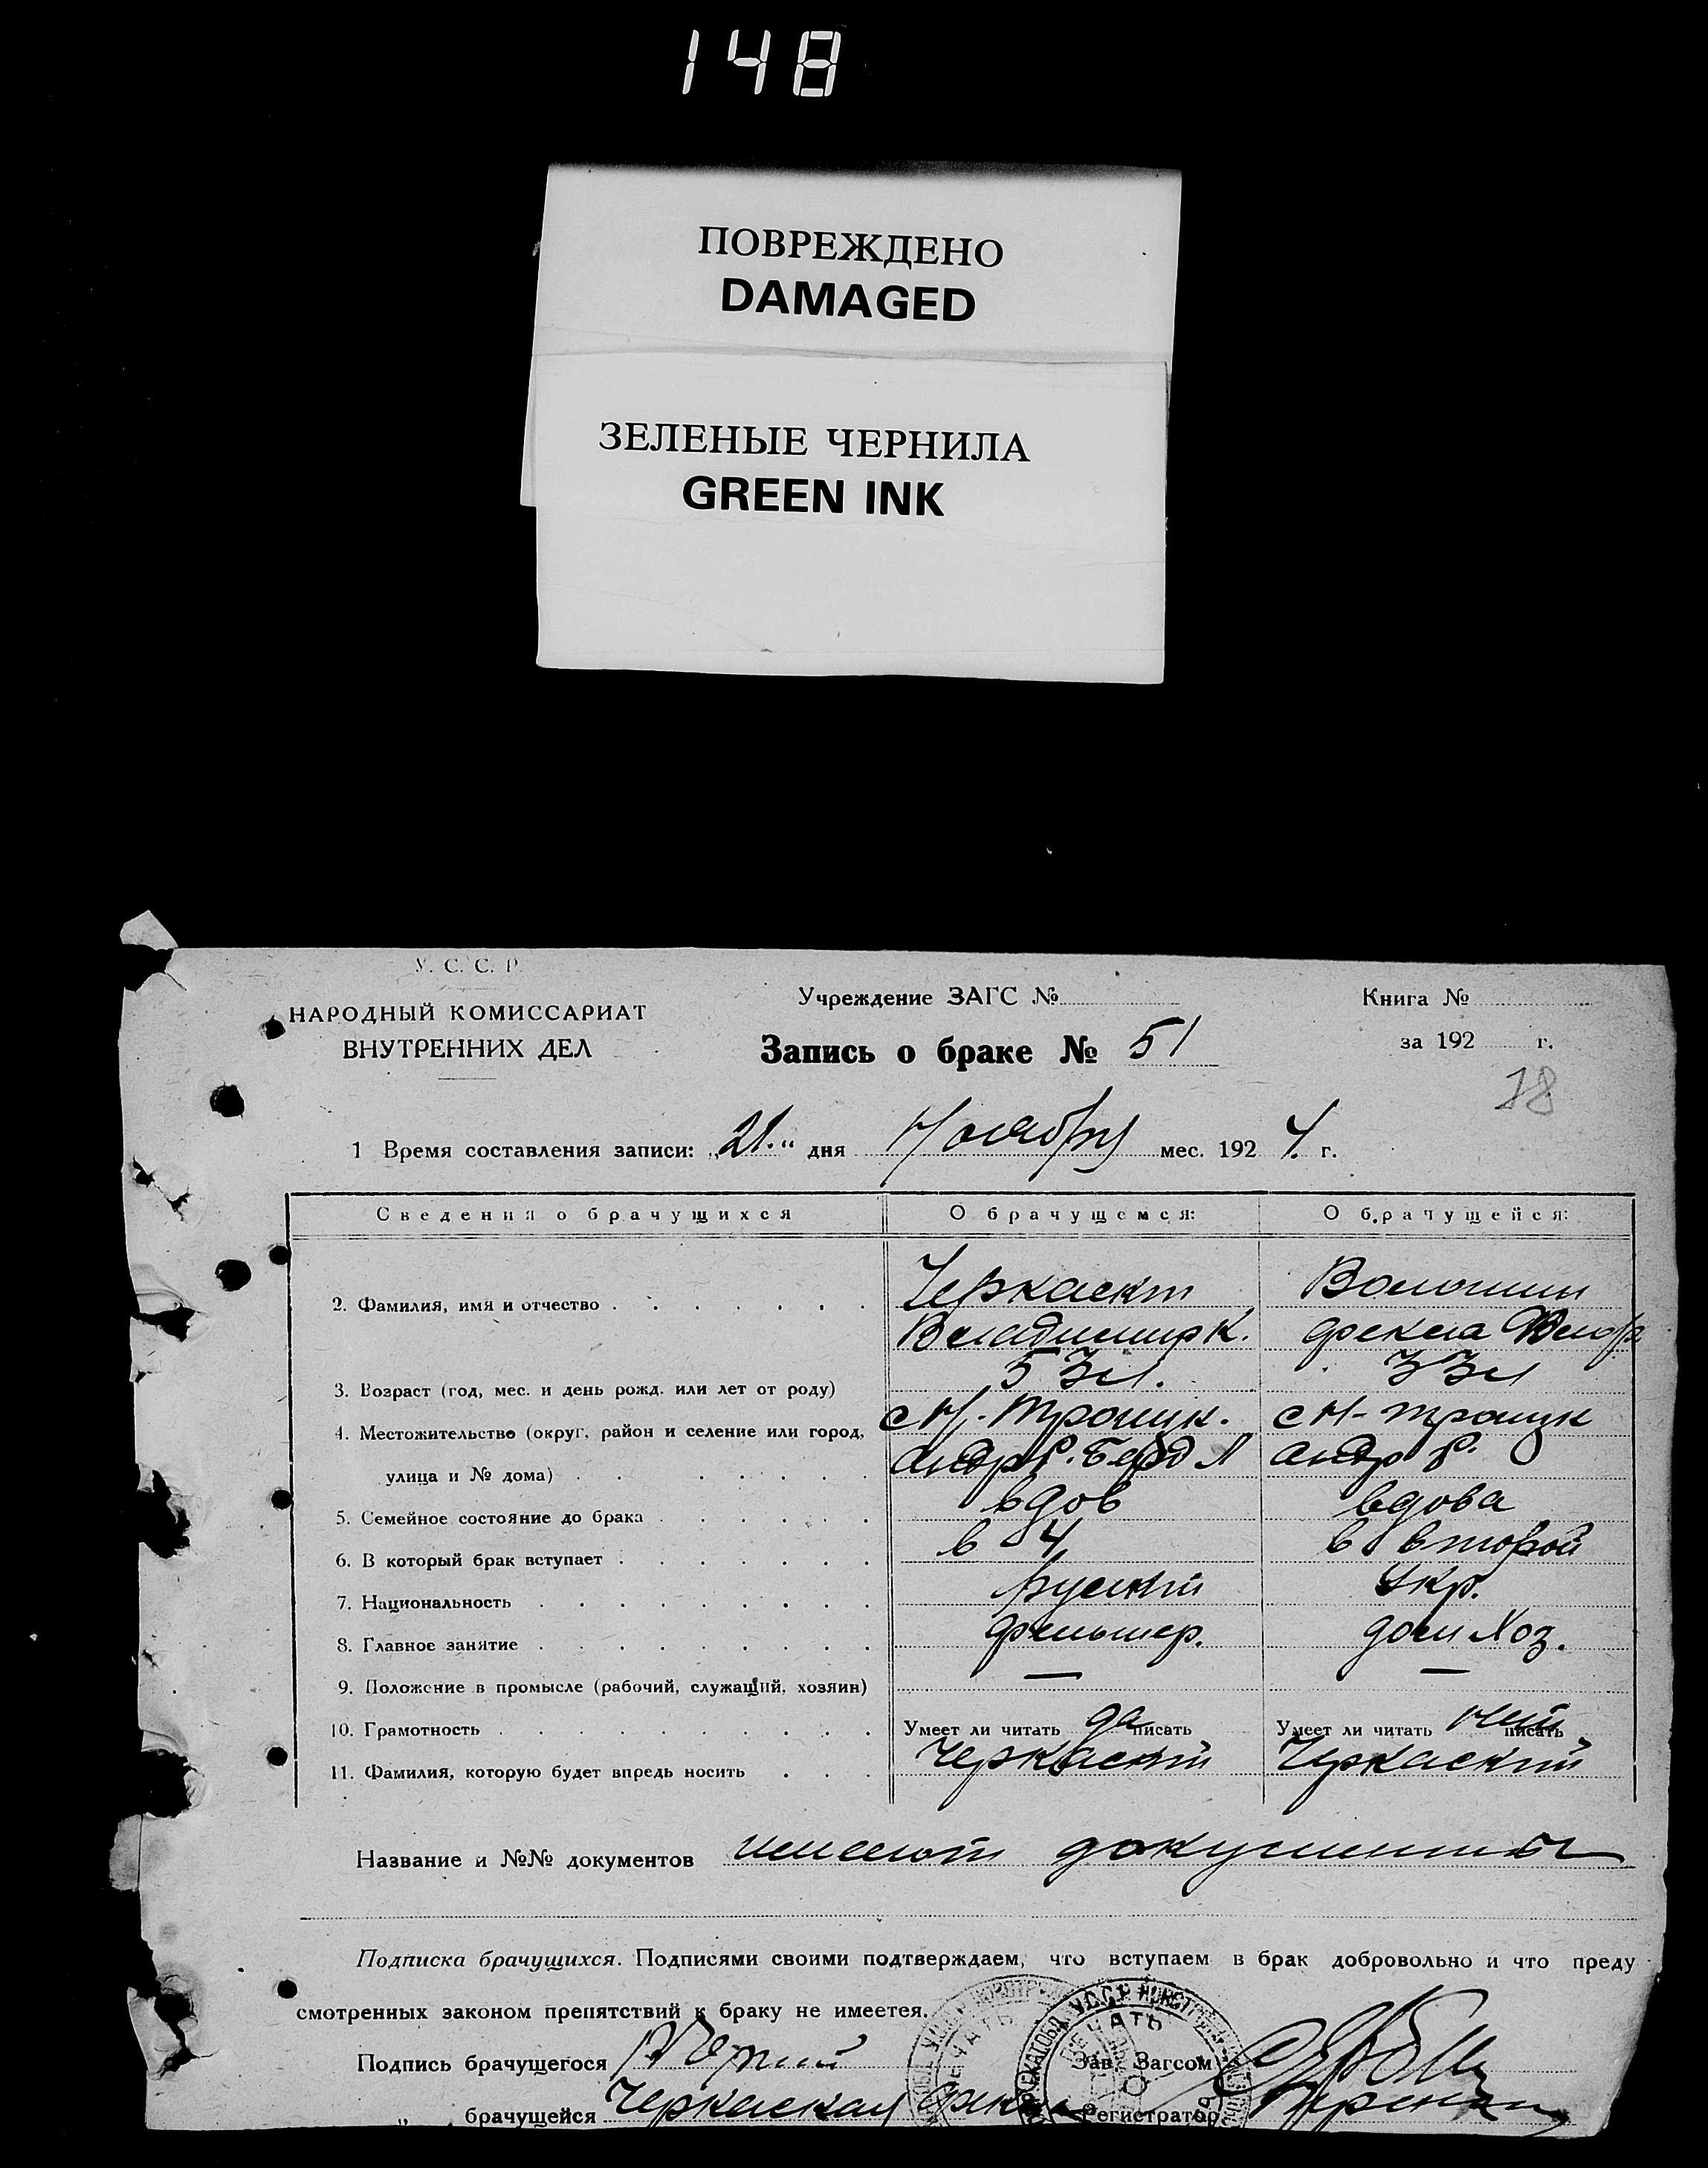 148
ПОВРЕЖДЕНО
DAMAGED
ЗЕЛЕНЫЕ ЧЕРНИЛА
GREEN INK
У. С. С. Р.
НАРОДНЫЙ КОМИССАРИАТ
ВНУТРЕННИХ ДЕЛ
Учреждение ЗАГС №
Книга №
Запись о браке № 51
за 192 г.
78
1 Время составления записи: „21." дня Ноября мес. 1924. г.
Сведения о брачущихся О брачущемся: О брачущейся:
2. Фамилия, имя и отчество Черкаский Волошин
Владимир К. Фекла
3. Возраст (год, мес. и день рожд. или лет от роду) 53 л. 33 л
4. Местожительство (округ, район и селение или город, с Н-Троицк. с Н-Троицк
улица и № дома) Андр Р. Бердя Андр Р.
5. Семейное состояние до брака вдов вдова
6. В который брак вступает в 4 в второй
7. Национальность Руский Укр.
8. Главное занятие фельшер. дом Хоз.
9. Положение в промысле (рабочий, служащий, хозяин) — —
10. Грамотность Умеет ли читать да писать Умеет ли читать нет писать
11. Фамилия, которую будет впредь носить Черкаский Черкаский
Название и №№ документов имеют документы
Подписка брачущихся. Подписями своими подтверждаем, что вступаем в брак добровольно и что преду
смотренных законом препятствий к браку не имеется.
Подпись брачущегося Зав. Загсом
„ брачущейся Черкаская Регистратор
У.С.С.Р.
ПЕЧАТЬ